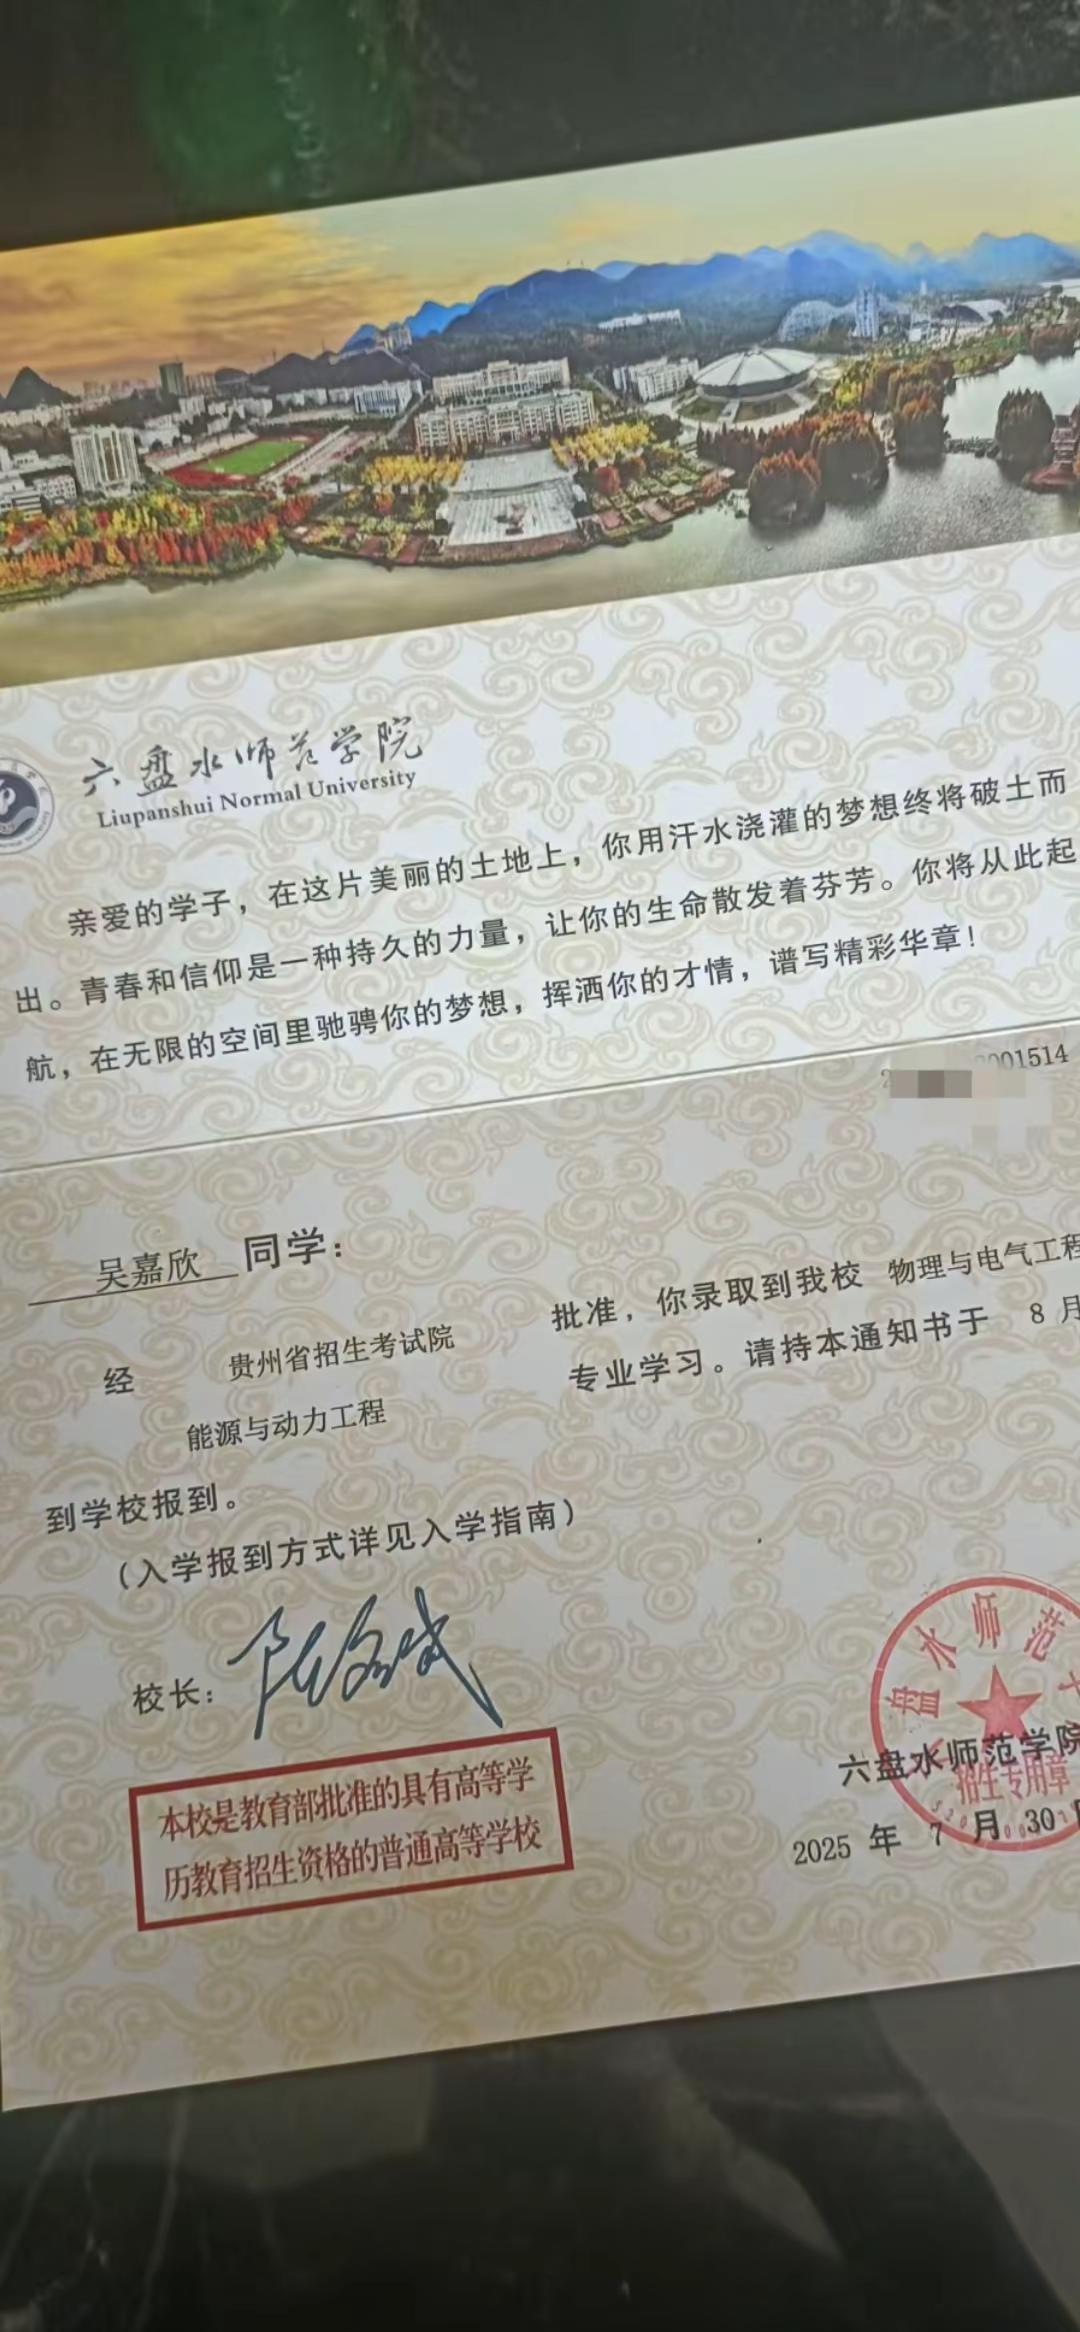 六盘水师范学院
Liupanshui Normal University
亲爱的学子，在这片美丽的土地上，你用汗水浇灌的梦想终将破土而
出。青春和信仰是一种持久的力量，让你的生命散发着芬芳。你将从此起
航，在无限的空间里驰骋你的梦想，挥洒你的才情，谱写精彩华章！
001514
吴嘉欣 同学：
经 贵州省招生考试院 批准，你录取到我校 物理与电气工程
能源与动力工程 专业学习。请持本通知书于 8 月
到学校报到。
（入学报到方式详见入学指南）
校长：
本校是教育部批准的具有高等学
历教育招生资格的普通高等学校
盘水师范
招生专用章
六盘水师范学院
2025 年 7 月 30 日